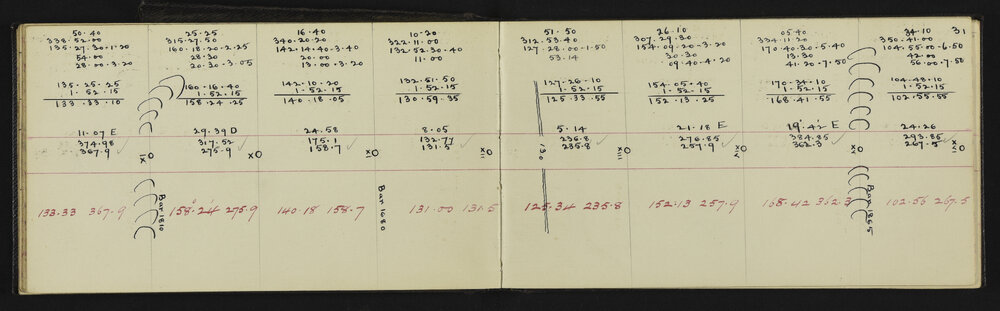 31
50.40
338.52.00
135.27.30-1.20
54.00
28.00-3.20
135.25.25
1.52.15
133.33.10
11.07 E
374.98
367.9
xi O
133.33 367.9
Bar.1810
25.25
315.27.50
160.18.20-2.25
28.30
20.30-3.05
160.16.40
1.52.15
158.24.25
29.39 D
317.52
275.9
x O
158.24 275.9
16.40
340.20.20
142.14.40-3.40
20.00
13.00-3.20
142.10.20
1.52.15
140.18.05
24.58
175.1
158.7
x O
140.18 158.7
Bar.1680
10.20
322.11.00
132.52.30-40
11.00
132.51.50
1.52.15
130.59.35
8.05
132.77
131.5
xii O
131.00 131.5
51.50
312.53.40
127.28.00-1.50
53.14
127.26.10
1.52.15
125.33.55
130
5.14
236.8
235.8
xiii O
125.34 235.8
26.10
307.29.30
154.09.20-3.20
30.30
09.40-4.20
154.05.40
1.52.15
152.13.25
21.18 E
276.85
257.9
xv O
152.13 257.9
05.40
334.11.20
170.40.30-5.40
13.30
41.20-7.50
170.34.10
1.52.15
168.41.55
19.42 E
384.85
362.3
x O
168.42 362.3
Bar.1865
34.10
350.41.00
104.55.00-6.50
42.00
56.00-7.50
104.48.10
1.52.15
102.55.55
24.26
293.85
267.5
x O
102.56 267.5